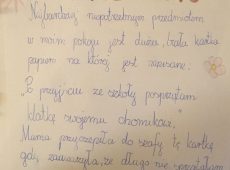 Najbardziej niepotrzebnym przedmiotem
w moim pokoju jest duża, biała kartka
papieru na której jest napisane:
"Po przyjściu ze szkoły posprzątam
klatkę swojemu chomikowi.
Mama przyczepiła do szafy tę kartkę
gdy zauważyła, że długo nie sprzątałam